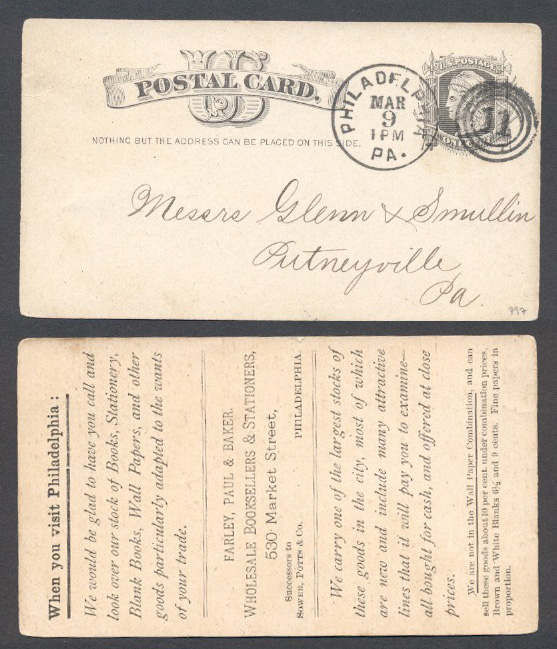 POSTAL CARD.
US
NOTHING BUT THE ADDRESS CAN BE PLACED ON THIS SIDE.
PHILADELPHIA
MAR
9
1 PM
PA.
U.S. POSTAGE
11
Messrs Glenn & Smullin
Putneyville
Pa.
797
When you visit Philadelphia:
We would be glad to have you call and
look over our stock of Books, Stationery,
Blank Books, Wall Papers, and other
goods particularly adapted to the wants
of your trade.
FARLEY, PAUL & BAKER,
WHOLESALE BOOKSELLERS & STATIONERS,
530 Market Street,
Successors to
SOWER, POTTS & Co.
PHILADELPHIA.
We carry one of the largest stocks of
these goods in the city, most of which
are new and include many attractive
lines that it will pay you to examine—
all bought for cash, and offered at close
prices.
We are not in the Wall Paper Combination, and can
sell these goods about 10 per cent under combination prices.
Brown and White Blanks 6½ and 9 cents. Fine papers in
proportion.